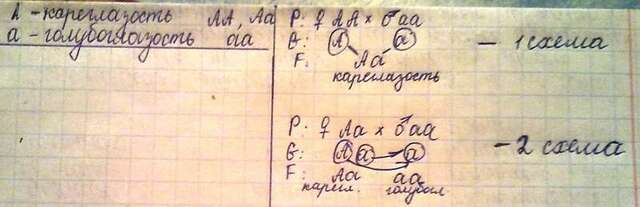 А - кареглазость АА, Аа
а - голубоглазость аа
Р: ♀ АА × ♂ аа
G: А а
F: Аа
кареглазость
- 1 схема
Р: ♀ Аа × ♂ аа
G: А а а
F: Аа аа
карегл. голубогл.
- 2 схема